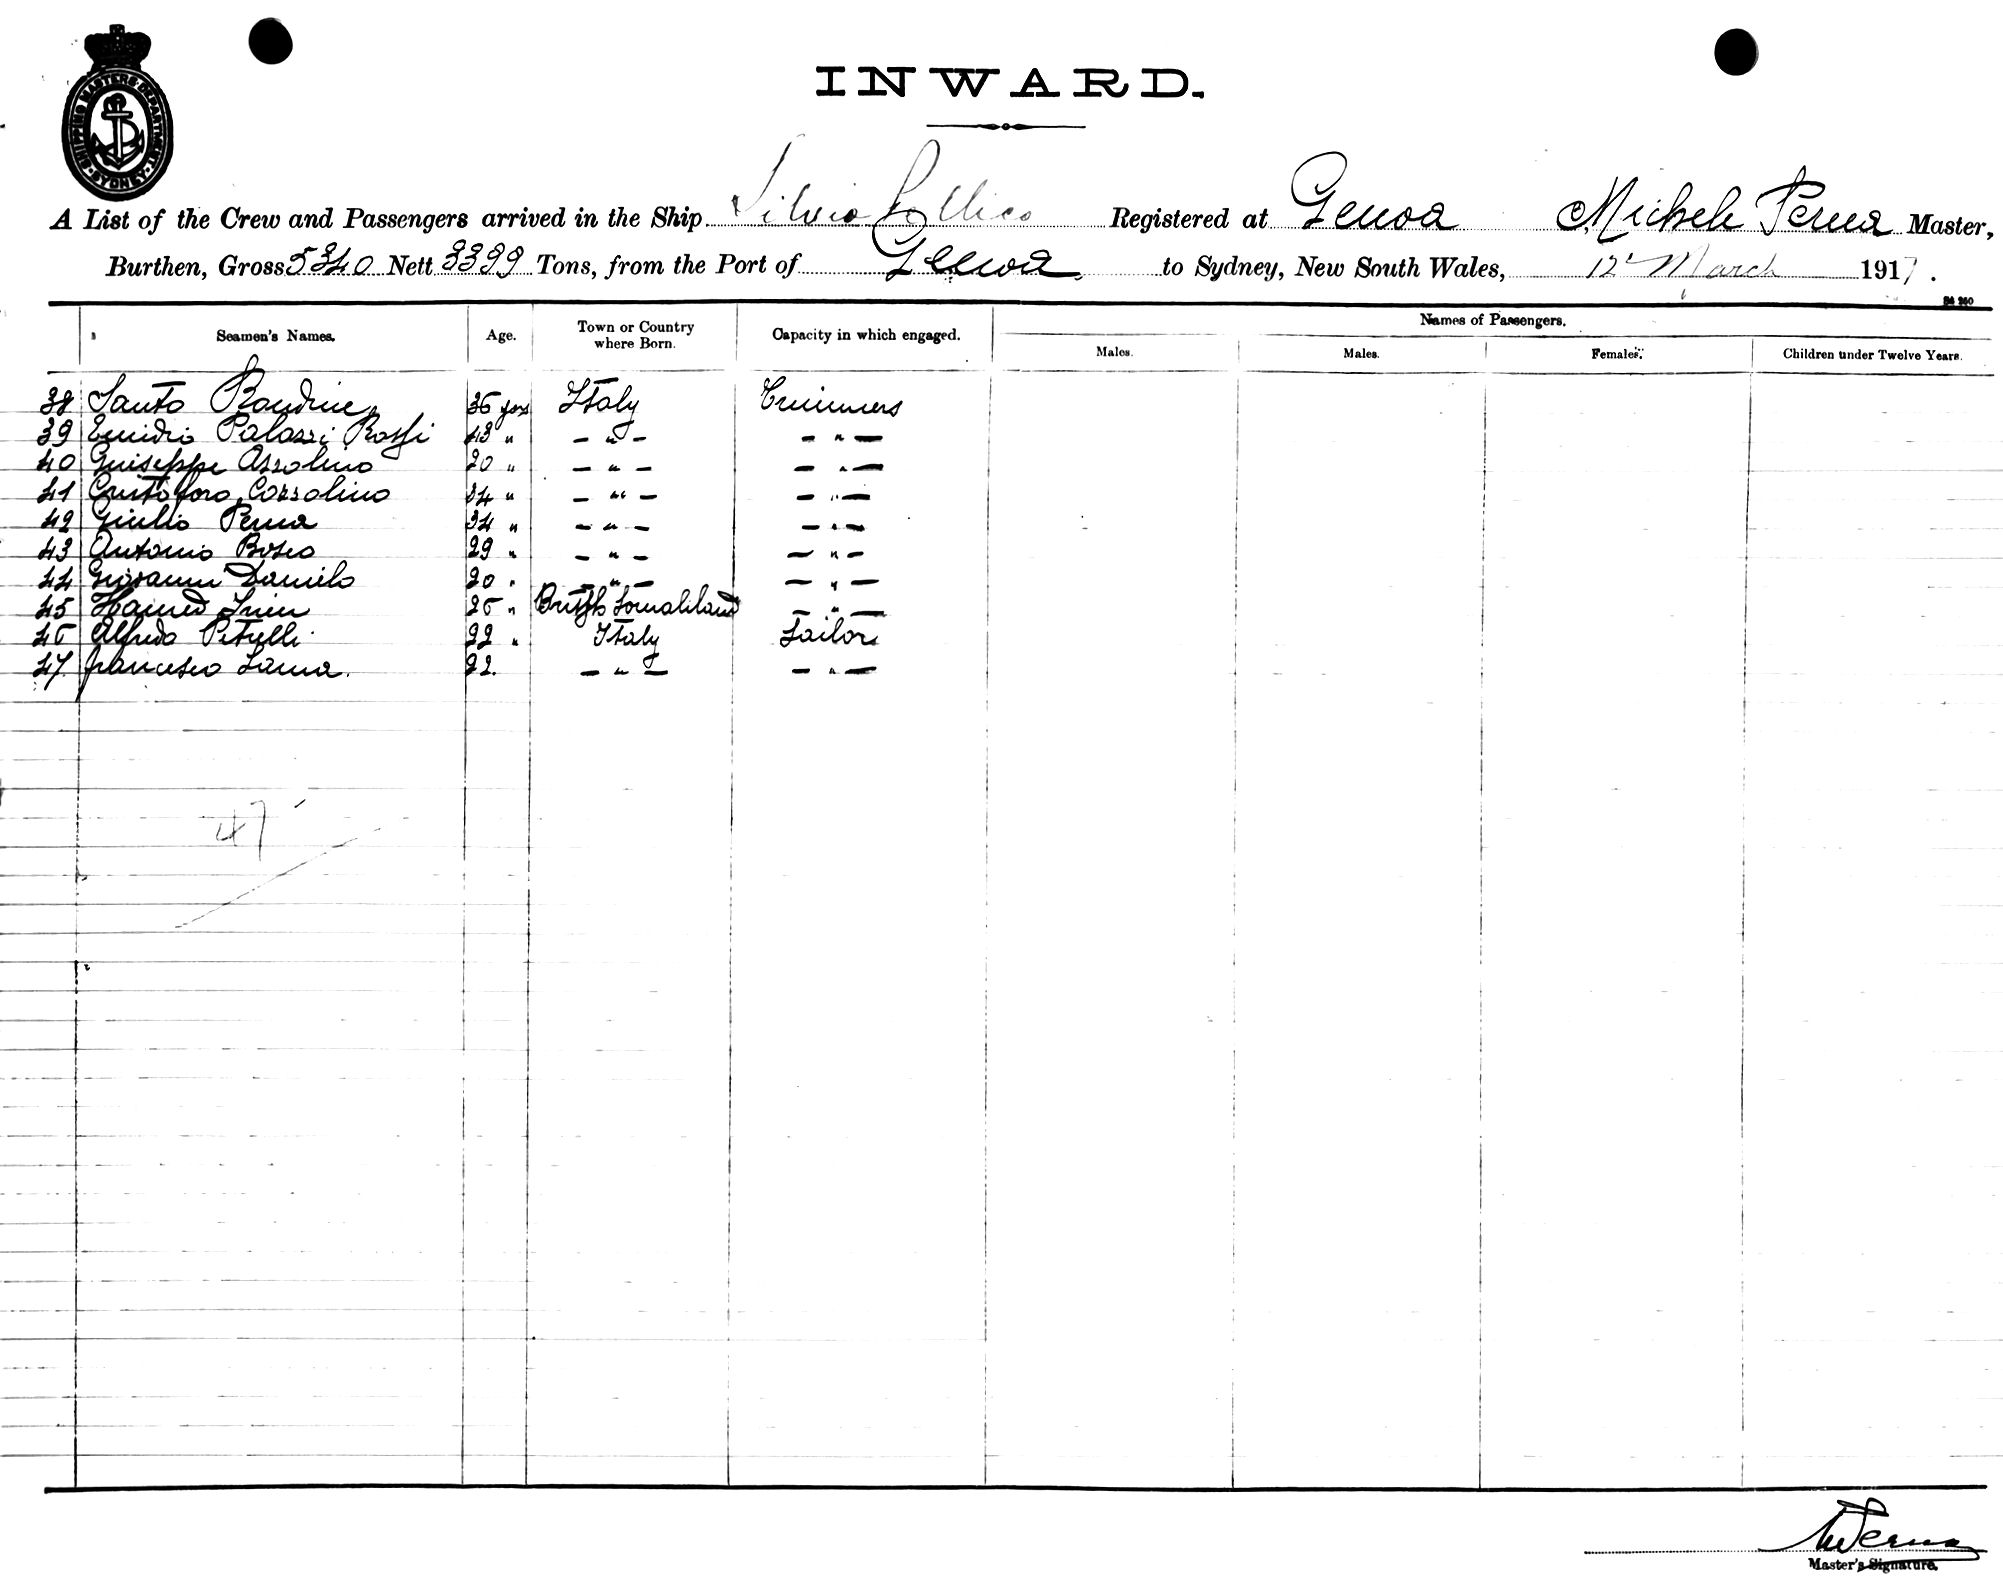 SHIPPING MASTERS DEPARTMENT SYDNEY
INWARD.
A List of the Crew and Passengers arrived in the Ship Silvio Pellico Registered at Genoa Michele Perna Master,
Burthen, Gross 5340 Nett 3399 Tons, from the Port of Genoa to Sydney, New South Wales, 12 March 1917.
Seamen's Names. Age. Town or Country where Born. Capacity in which engaged. Names of Passengers.
Males. Males. Females. Children under Twelve Years.
38 Santo 36 yrs Italy Trimmers
39 Emidio Palazzi Rossi 43 " - " - - " -
40 Guiseppe Azzolino 20 " - " - - " -
41 Cristoforo Cozzolino 34 " - " - - " -
42 Giulio Perna 34 " - " - - " -
43 Antonio Bosco 29 " - " - - " -
44 Giovanni Danielo 20 " - " - - " -
45 Hamed 26 " British Somaliland - " -
46 Alfredo Pitrelli 22 " Italy Sailor
47 Francesco Sarna. 22. - " - - " -
47
M Perna
Master's Signature.